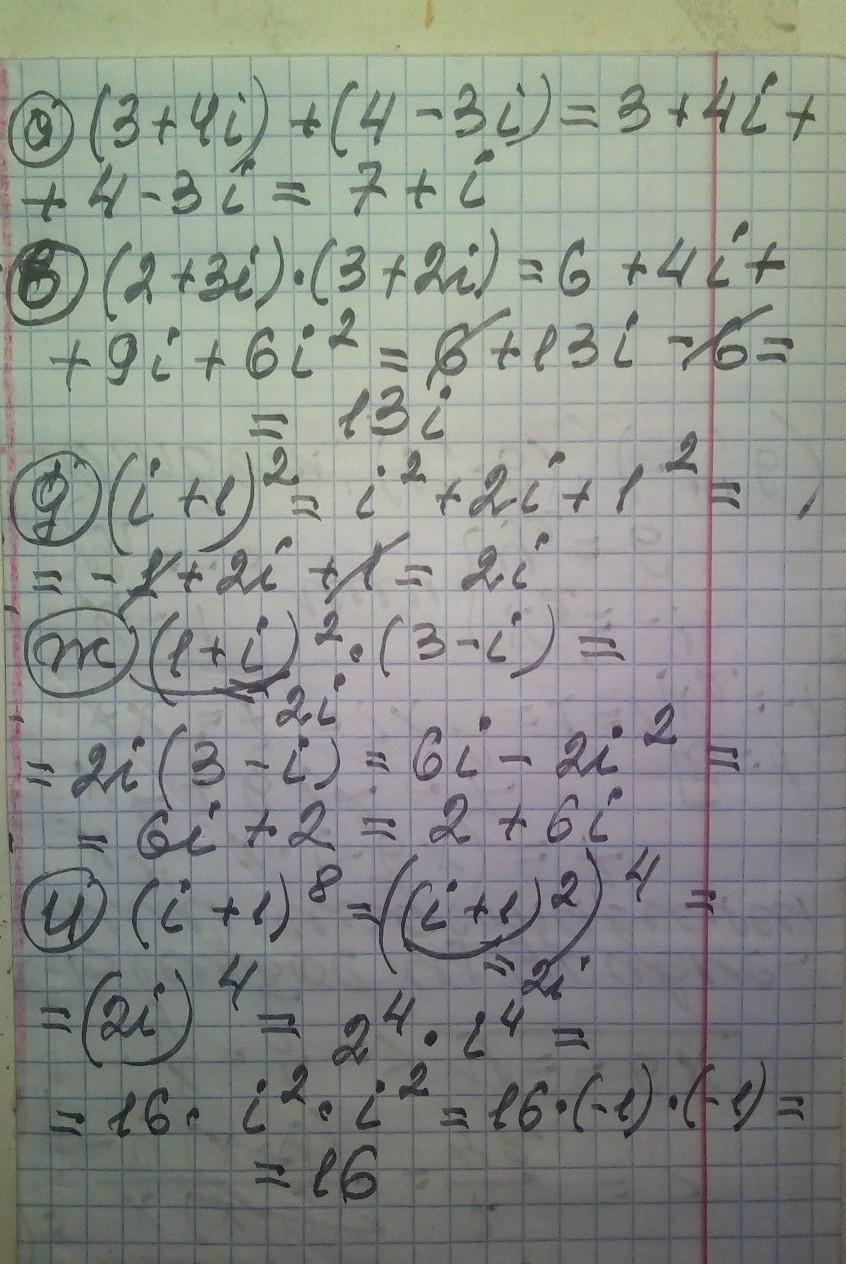 а) (3+4i)+(4-3i)=3+4i+
+4-3i=7+i
в) (2+3i)·(3+2i)=6+4i+
+9i+6i²=6+13i-6=
=13i
д) (i+1)²=i²+2i+1²=
=-1+2i+1=2i
ж) (1+i)²·(3-i)=
=2i
=2i(3-i)=6i-2i²=
=6i+2=2+6i
и) (i+1)⁸=((i+1)²)⁴=
=2i
=(2i)⁴=2⁴·i⁴=
=16·i²·i²=16·(-1)·(-1)=
=16